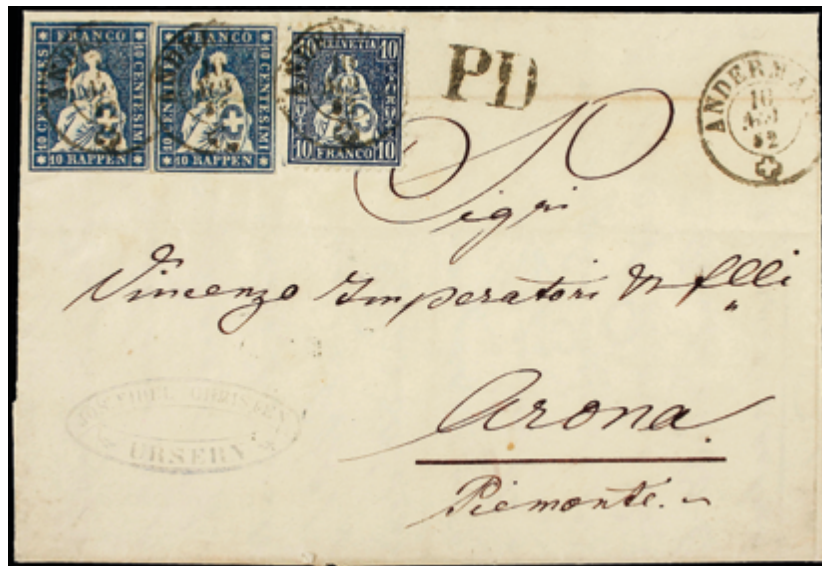 FRANCO
10 CENTIMES
10 CENTESIMI
10 RAPPEN
FRANCO
10 CENTESIMI
10 RAPPEN
10 HELVETIA 10
10 FRANCO 10
PD
ANDERMA
10
Sigri
Vincenzo Imperatori & flli
Arona
Piemonte.
CHRISTEN
URSERN